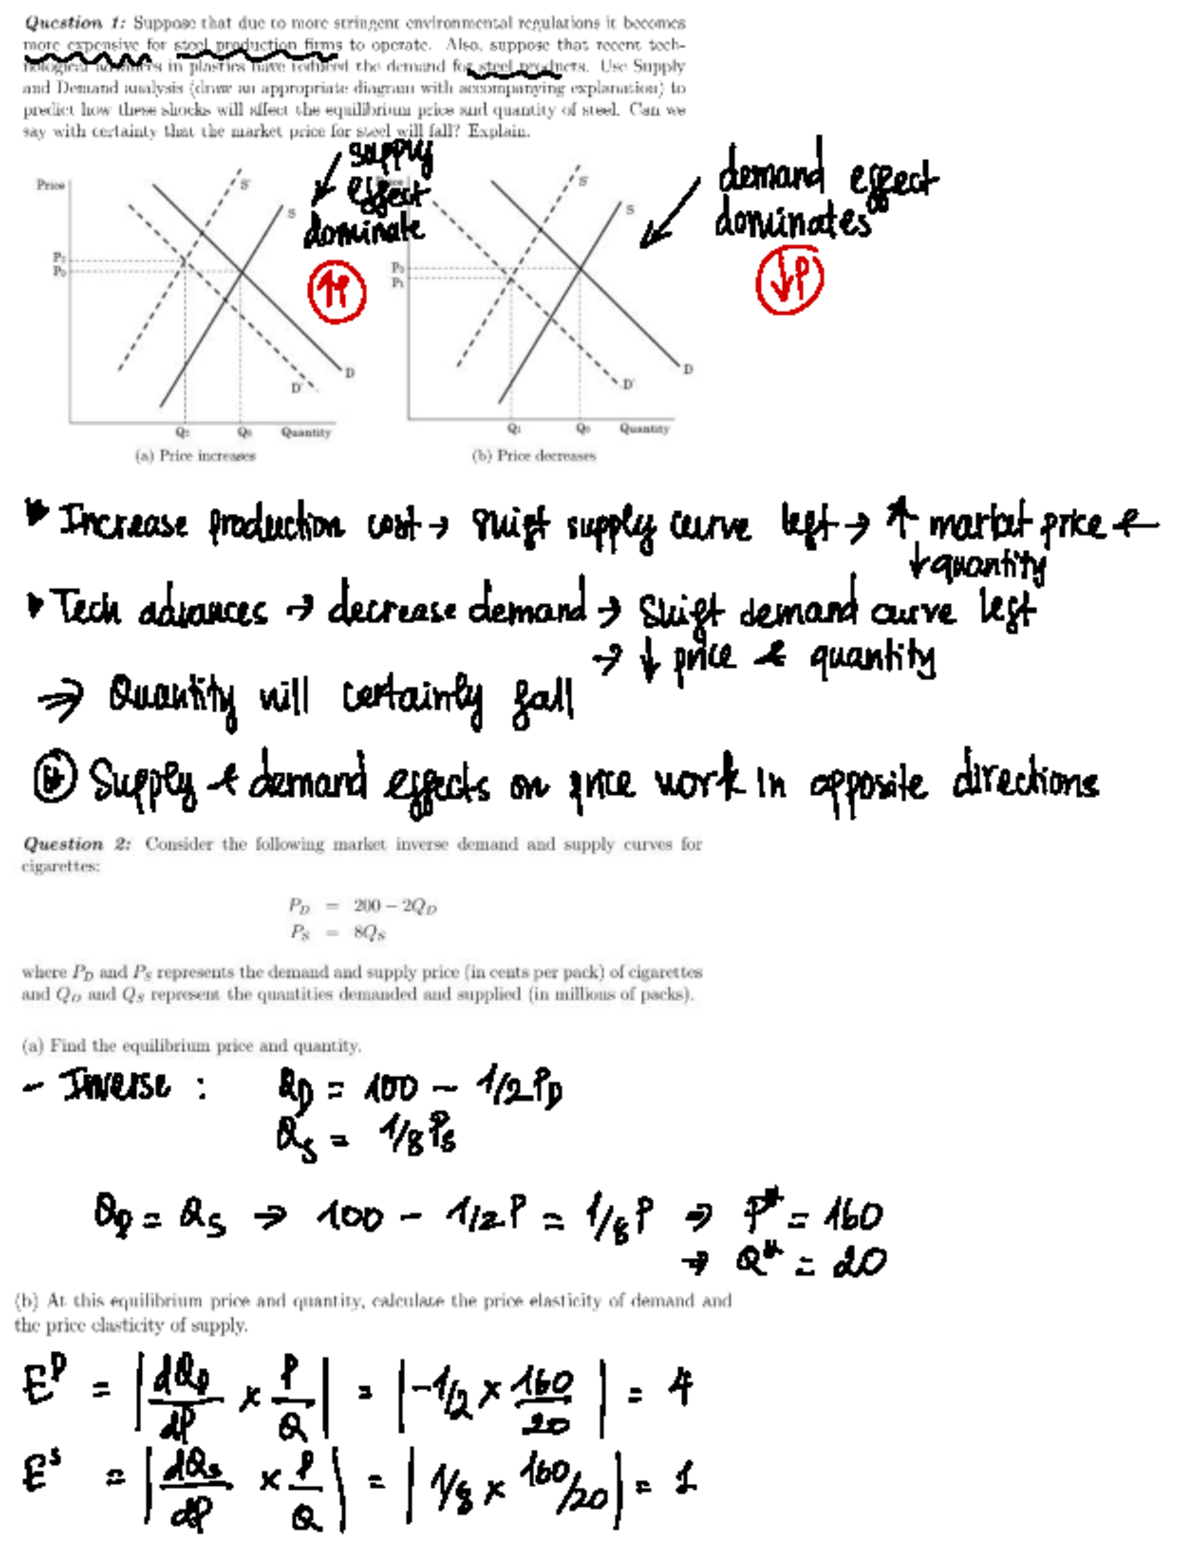 Question 1: Suppose that due to more stringent environmental regulations it becomes
more expensive for steel production firms to operate. Also, suppose that recent tech-
nological advances in plastics have reduced the demand for steel products. Use Supply
and Demand analysis (draw an appropriate diagram with accompanying explanation) to
predict how these shocks will affect the equilibrium price and quantity of steel. Can we
say with certainty that the market price for steel will fall? Explain.
supply
effect
dominate
↑P
demand effect
dominates
↓P
Price
S'
S
P₂
P₀
D
D'
Q₂
Q₀
Quantity
(a) Price increases
S'
S
P₀
P₁
D
D'
Q₁
Q₀
Quantity
(b) Price decreases
Increase production cost → shift supply curve left → ↑ market price &
↓ quantity
Tech advances → decrease demand → shift demand curve left
→ ↓ price & quantity
⇒ Quantity will certainly fall
Supply & demand effects on price work in opposite directions
Question 2: Consider the following market inverse demand and supply curves for
cigarettes:
P_D = 200 − 2Q_D
P_S = 8Q_S
where P_D and P_S represents the demand and supply price (in cents per pack) of cigarettes
and Q_D and Q_S represent the quantities demanded and supplied (in millions of packs).
(a) Find the equilibrium price and quantity.
- Inverse : Q_D = 100 − 1/2 P_D
Q_S = 1/8 P_S
Q_D = Q_S ⇒ 100 − 1/2 P = 1/8 P ⇒ P* = 160
→ Q* = 20
(b) At this equilibrium price and quantity, calculate the price elasticity of demand and
the price elasticity of supply.
E^D = | dQ_D/dP × P/Q | = | −1/2 × 160/20 | = 4
E^S = | dQ_S/dP × P/Q | = | 1/8 × 160/20 | = 1